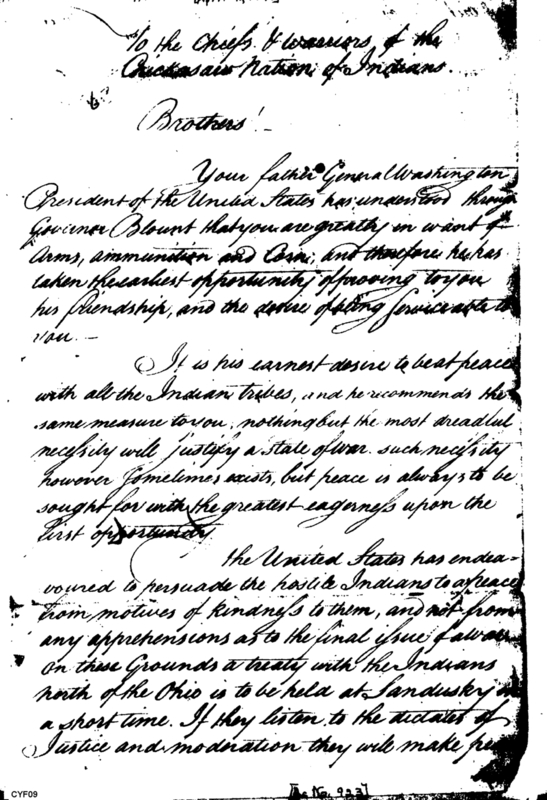 To the Chiefs & Warriors of the
Chickasaw Nation of Indians.
Brothers!
Your father General Washington
President of the United States has understood through
Governor Blount that you are greatly in want of
Arms, ammunition and Corn; and therefore he has
taken the earliest opportunity of proving to you
his friendship, and the desire of being Serviceable to
you.—
It is his earnest desire to be at peace
with all the Indian tribes, and he recommends the
same measure to you, nothing but the most dreadful
necessity will justify a state of war. such necessity
however sometimes exists, but peace is always to be
sought for with the greatest eagerness upon the
first opportunity
the United States has endea-
voured to persuade the hostile Indians to a peace
from motives of kindness to them, and not from
any apprehensions as to the final issue of a war
On these Grounds a treaty with the Indians
north of the Ohio is to be held at Sandusky in
a short time. If they listen to the dictates of
Justice and moderation they will make
CYF09
No. 923]